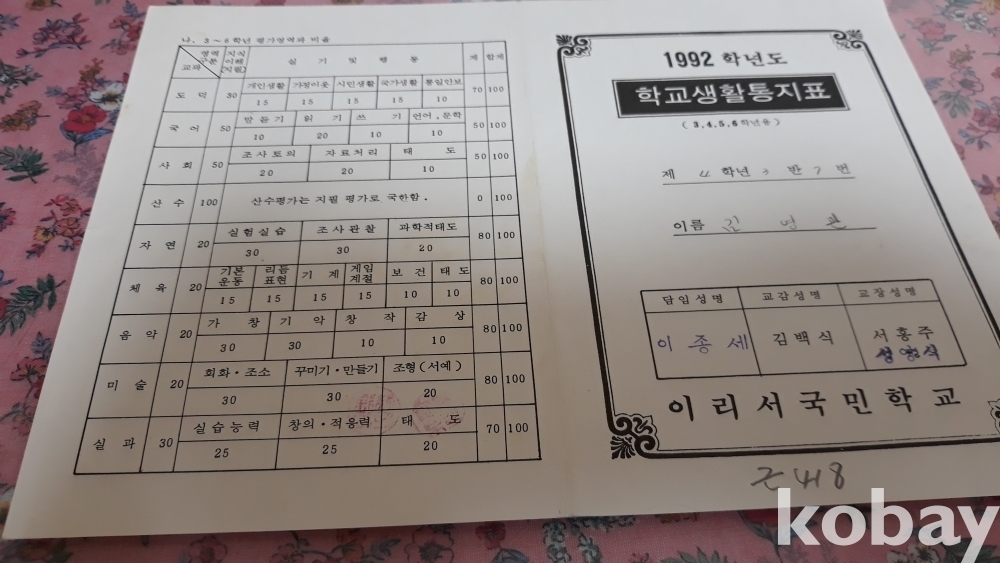 나. 3~6학년 평가영역과 비율
영역 구분 교과 지식 이해 지필 실 기 및 행 동 계 합계
도 덕 30 개인생활 가정이웃 시민생활 국가생활 통일안보 70 100
15 15 15 15 10
국 어 50 말듣기 읽 기 쓰 기 언어,문학 50 100
10 20 10 10
사 회 50 조사토의 자료처리 태 도 50 100
20 20 10
산 수 100 산수평가는 지필 평가로 국한함. 0 100
자 연 20 실험실습 조사관찰 과학적태도 80 100
30 30 20
체 육 20 기본운동 리듬표현 기 계 게임계절 보 건 태 도 80 100
15 15 15 15 10 10
음 악 20 가 창 기 악 창 작 감 상 80 100
30 30 10 10
미 술 20 회화·조소 꾸미기·만들기 조형(서예) 80 100
30 30 20
실 과 30 실습능력 창의·적응력 태 도 70 100
25 25 20
1992 학년도
학교생활통지표
(3,4,5,6학년용)
제 4 학년 3 반 7 번
이름 김 영
담임성명 교감성명 교장성명
이 종 세 김백식 서홍주
이리서국민학교
418
kobay